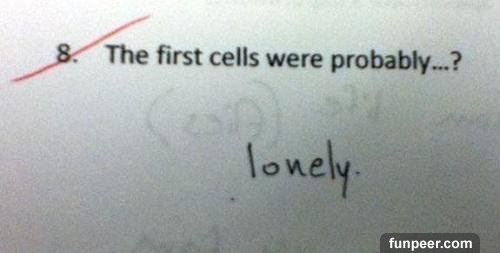 8. The first cells were probably...?
lonely.
funpeer.com